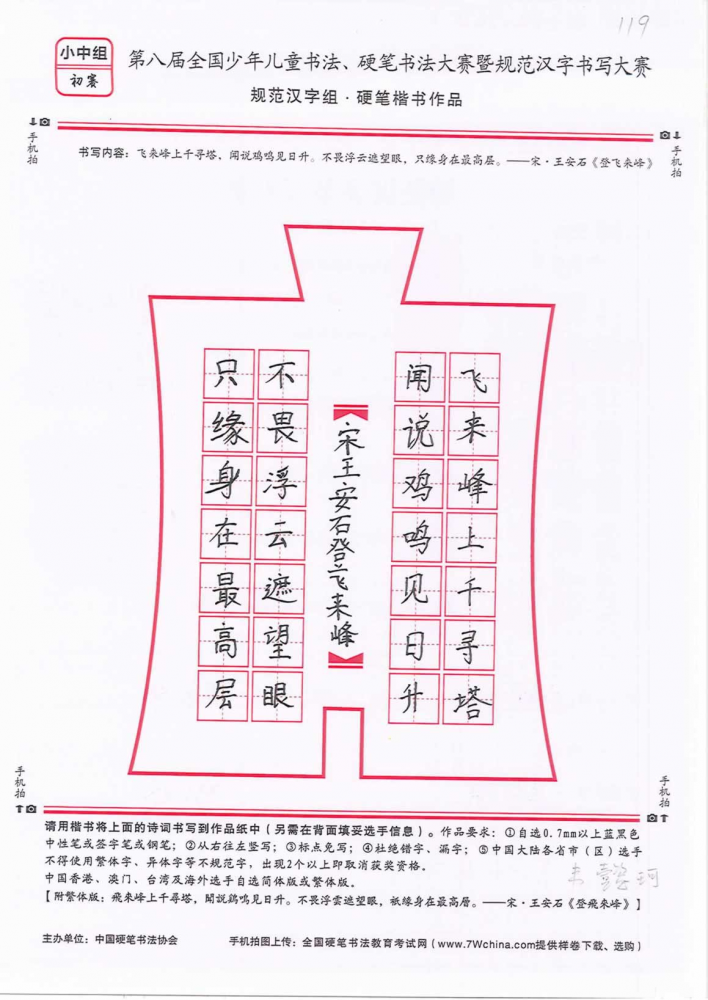 119
小中组
初赛
第八届全国少年儿童书法、硬笔书法大赛暨规范汉字书写大赛
规范汉字组·硬笔楷书作品
手机拍
手机拍
书写内容：飞来峰上千寻塔，闻说鸡鸣见日升。不畏浮云遮望眼，只缘身在最高层。——宋·王安石《登飞来峰》
飞来峰上千寻塔
闻说鸡鸣见日升
宋王安石登飞来峰
不畏浮云遮望眼
只缘身在最高层
手机拍
手机拍
请用楷书将上面的诗词书写到作品纸中（另需在背面填妥选手信息）。作品要求：①自选0.7mm以上蓝黑色
中性笔或签字笔或钢笔；②从右往左竖写；③标点免写；④杜绝错字、漏字；⑤中国大陆各省市（区）选手
不得使用繁体字、异体字等不规范字，出现2个以上即取消获奖资格。
中国香港、澳门、台湾及海外选手自选简体版或繁体版。
【附繁体版：飛來峰上千尋塔，聞說鷄鳴見日升。不畏浮雲遮望眼，祇緣身在最高層。——宋·王安石《登飛來峰》】
珂
主办单位：中国硬笔书法协会
手机拍图上传：全国硬笔书法教育考试网（www.7Wchina.com提供样卷下载、选购）